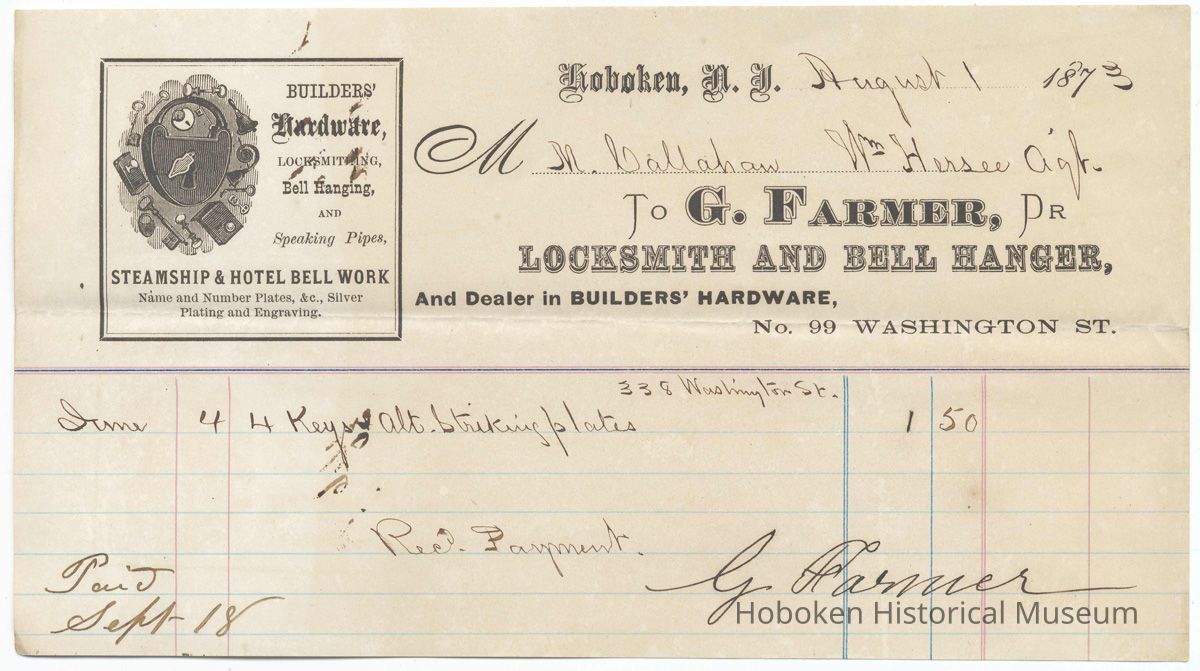 BUILDERS'
Hardware,
LOCKSMITHING,
Bell Hanging,
AND
Speaking Pipes,
STEAMSHIP & HOTEL BELL WORK
Name and Number Plates, &c., Silver
Plating and Engraving.
Hoboken, N. J. August 1 1873
M M. Callahan Wm Hersee Agt.
To G. FARMER, DR
LOCKSMITH AND BELL HANGER,
And Dealer in BUILDERS' HARDWARE,
No. 99 WASHINGTON ST.
338 Washington St.
June 4 4 Keys Alt. Striking plates 1 50
Recd. Payment.
G. Farmer
Paid
Sept 18
Hoboken Historical Museum